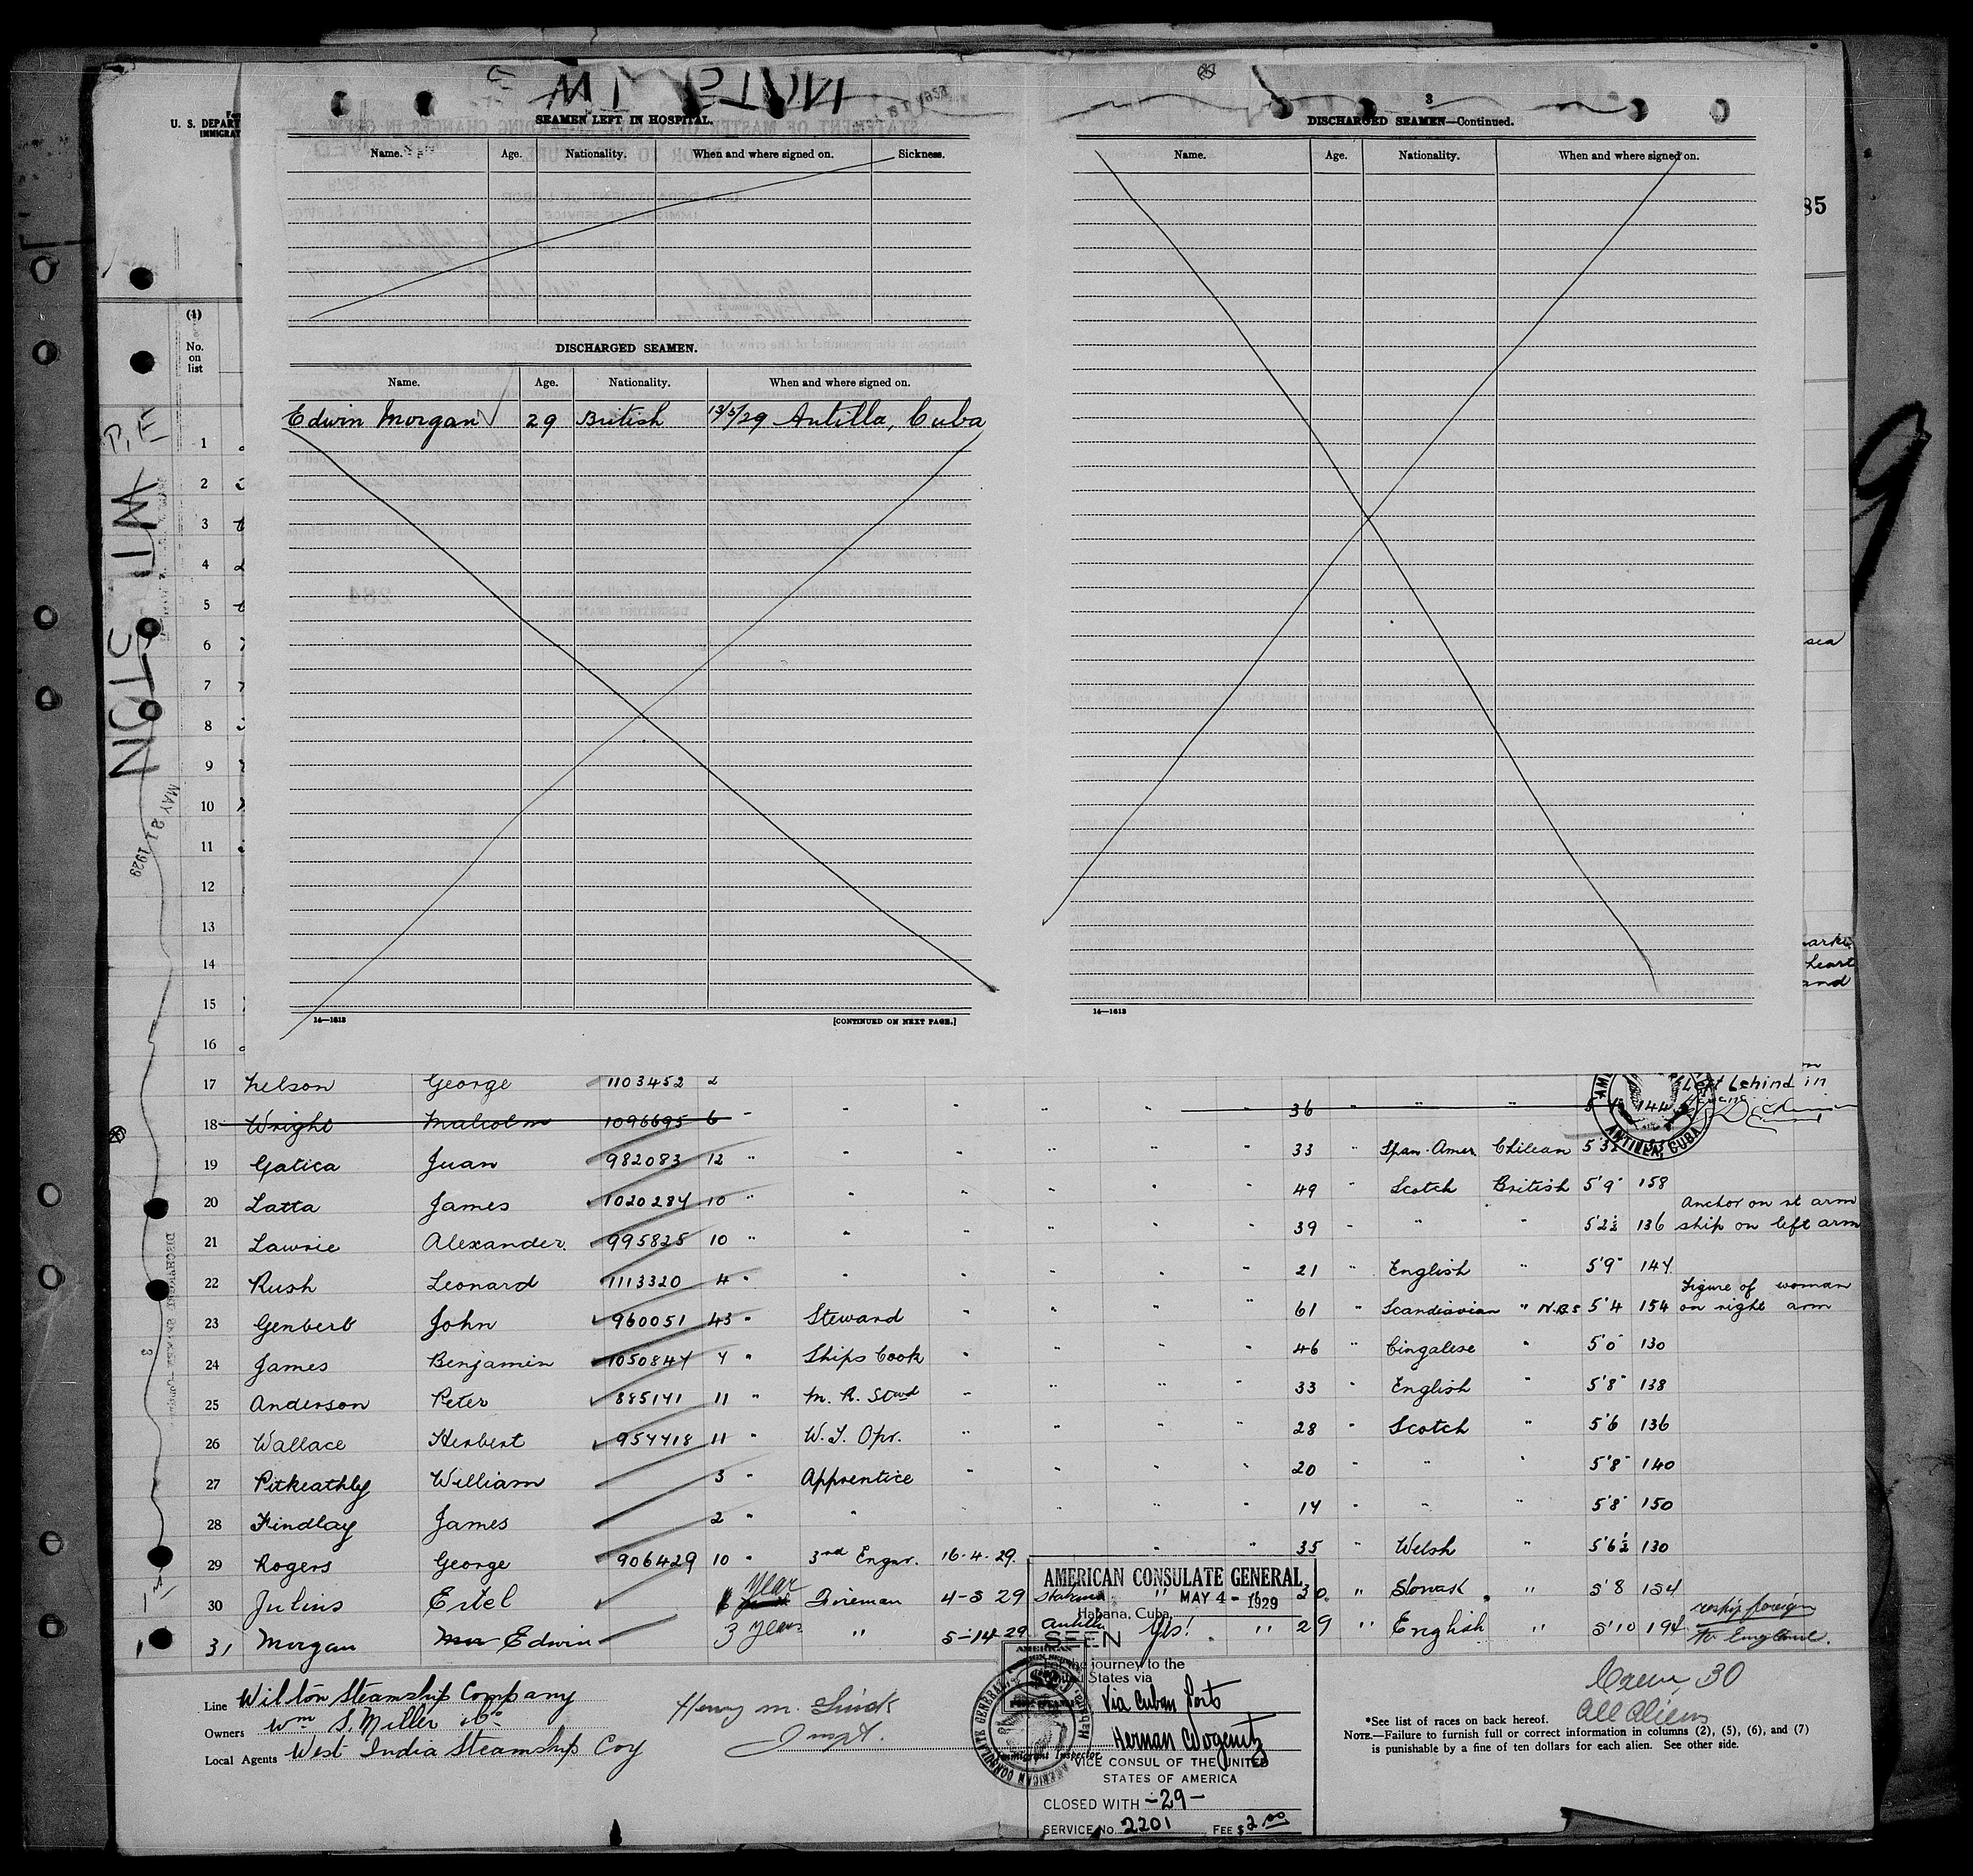 U. S. DEPAR
IMMIGRAT
WILSTON
SEAMEN LEFT IN HOSPITAL.
Name. Age. Nationality. When and where signed on. Sickness.
DISCHARGED SEAMEN.
Name. Age. Nationality. When and where signed on.
Edwin Morgan 29 British 13/5/29 Antilla, Cuba
14—1613 [CONTINUED ON NEXT PAGE.]
3
DISCHARGED SEAMEN—Continued.
Name. Age. Nationality. When and where signed on.
14—1613
85
9
sea
heart
and
(1)
No.
on
list
1
2
3
4
5
6
7
8
9
10
11
12
13
14
15
16
MAY 21 1929
17 Nelson George 1103452 2
Left behind in
18 Wright Malcolm 1096695 6 " " " " " " 36 " " " 144
ANTILLA, CUBA
19 Gatica Juan 982083 12 " " " " " " 33 " Span. Amer. Chilean
20 Latta James 1020284 10 " " " " " " 49 " Scotch British 5'9" 158
21 Lawrie Alexander. 995825 10 " " " " " " 39 " " " 5'2½ 136 Anchor on rt arm
ship on left arm
22 Rush Leonard 1113320 4 " " " " " " 21 " English " 5'9" 144
23 Genberb John 960051 43 " Steward " " " " 61 " Scandiavian " N.B.S 5'4 154 Figure of woman
on right arm
24 James Benjamin 1050844 4 " Ships Cook " " " " 46 " Cingalese " 5'0" 130
25 Anderson Peter 885141 11 " M. R. Stwd " " " " 33 " English " 5'8" 138
26 Wallace Herbert 954418 11 " W. T. Opr. " " " " 28 " Scotch " 5'6 136
27 Pitkeathly William 3 " Apprentice " " " " 20 " " " 5'8" 140
28 Findlay James 2 " " " " " " 14 " " " 5'8" 150
29 Rogers George 906429 10 " 3rd Engnr. 16.4.29. " " 35 " Welsh " 5'6½ 130
30 Julius Ertel 1 year Fireman 4-5 29 Habana " 30 " Slovak " 5'8 154
1 31 Morgan Edwin 3 years " 5-14-29 Antilla Yes! " 29 " English " 5'10 194 reship foreign
to England.
Line Wilton Steamship Company
Owners Wm S. Miller & Co
Local Agents West India Steamship Coy
Immigrant Inspector
AMERICAN CONSULATE GENERAL
MAY 4 - 1929
Habana, Cuba
SEEN
For the journey to the
United States via
Via Cuban Ports
VICE CONSUL OF THE UNITED
STATES OF AMERICA
CLOSED WITH -29-
SERVICE No. 2201 FEE $ 2.00
AMERICAN CONSULATE GENERAL Habana
Crew 30
All Aliens
*See list of races on back hereof.
NOTE.—Failure to furnish full or correct information in columns (2), (5), (6), and (7)
is punishable by a fine of ten dollars for each alien. See other side.